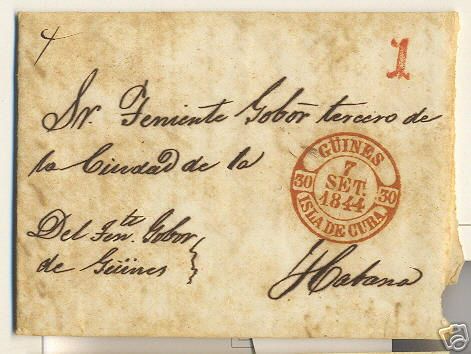 1
Sr. Teniente Gobor tercero de
la Ciudad de la
Habana
Del Tente Gobor
de Güines
GÜINES
7
SET
1844
30 30
ISLA DE CUBA